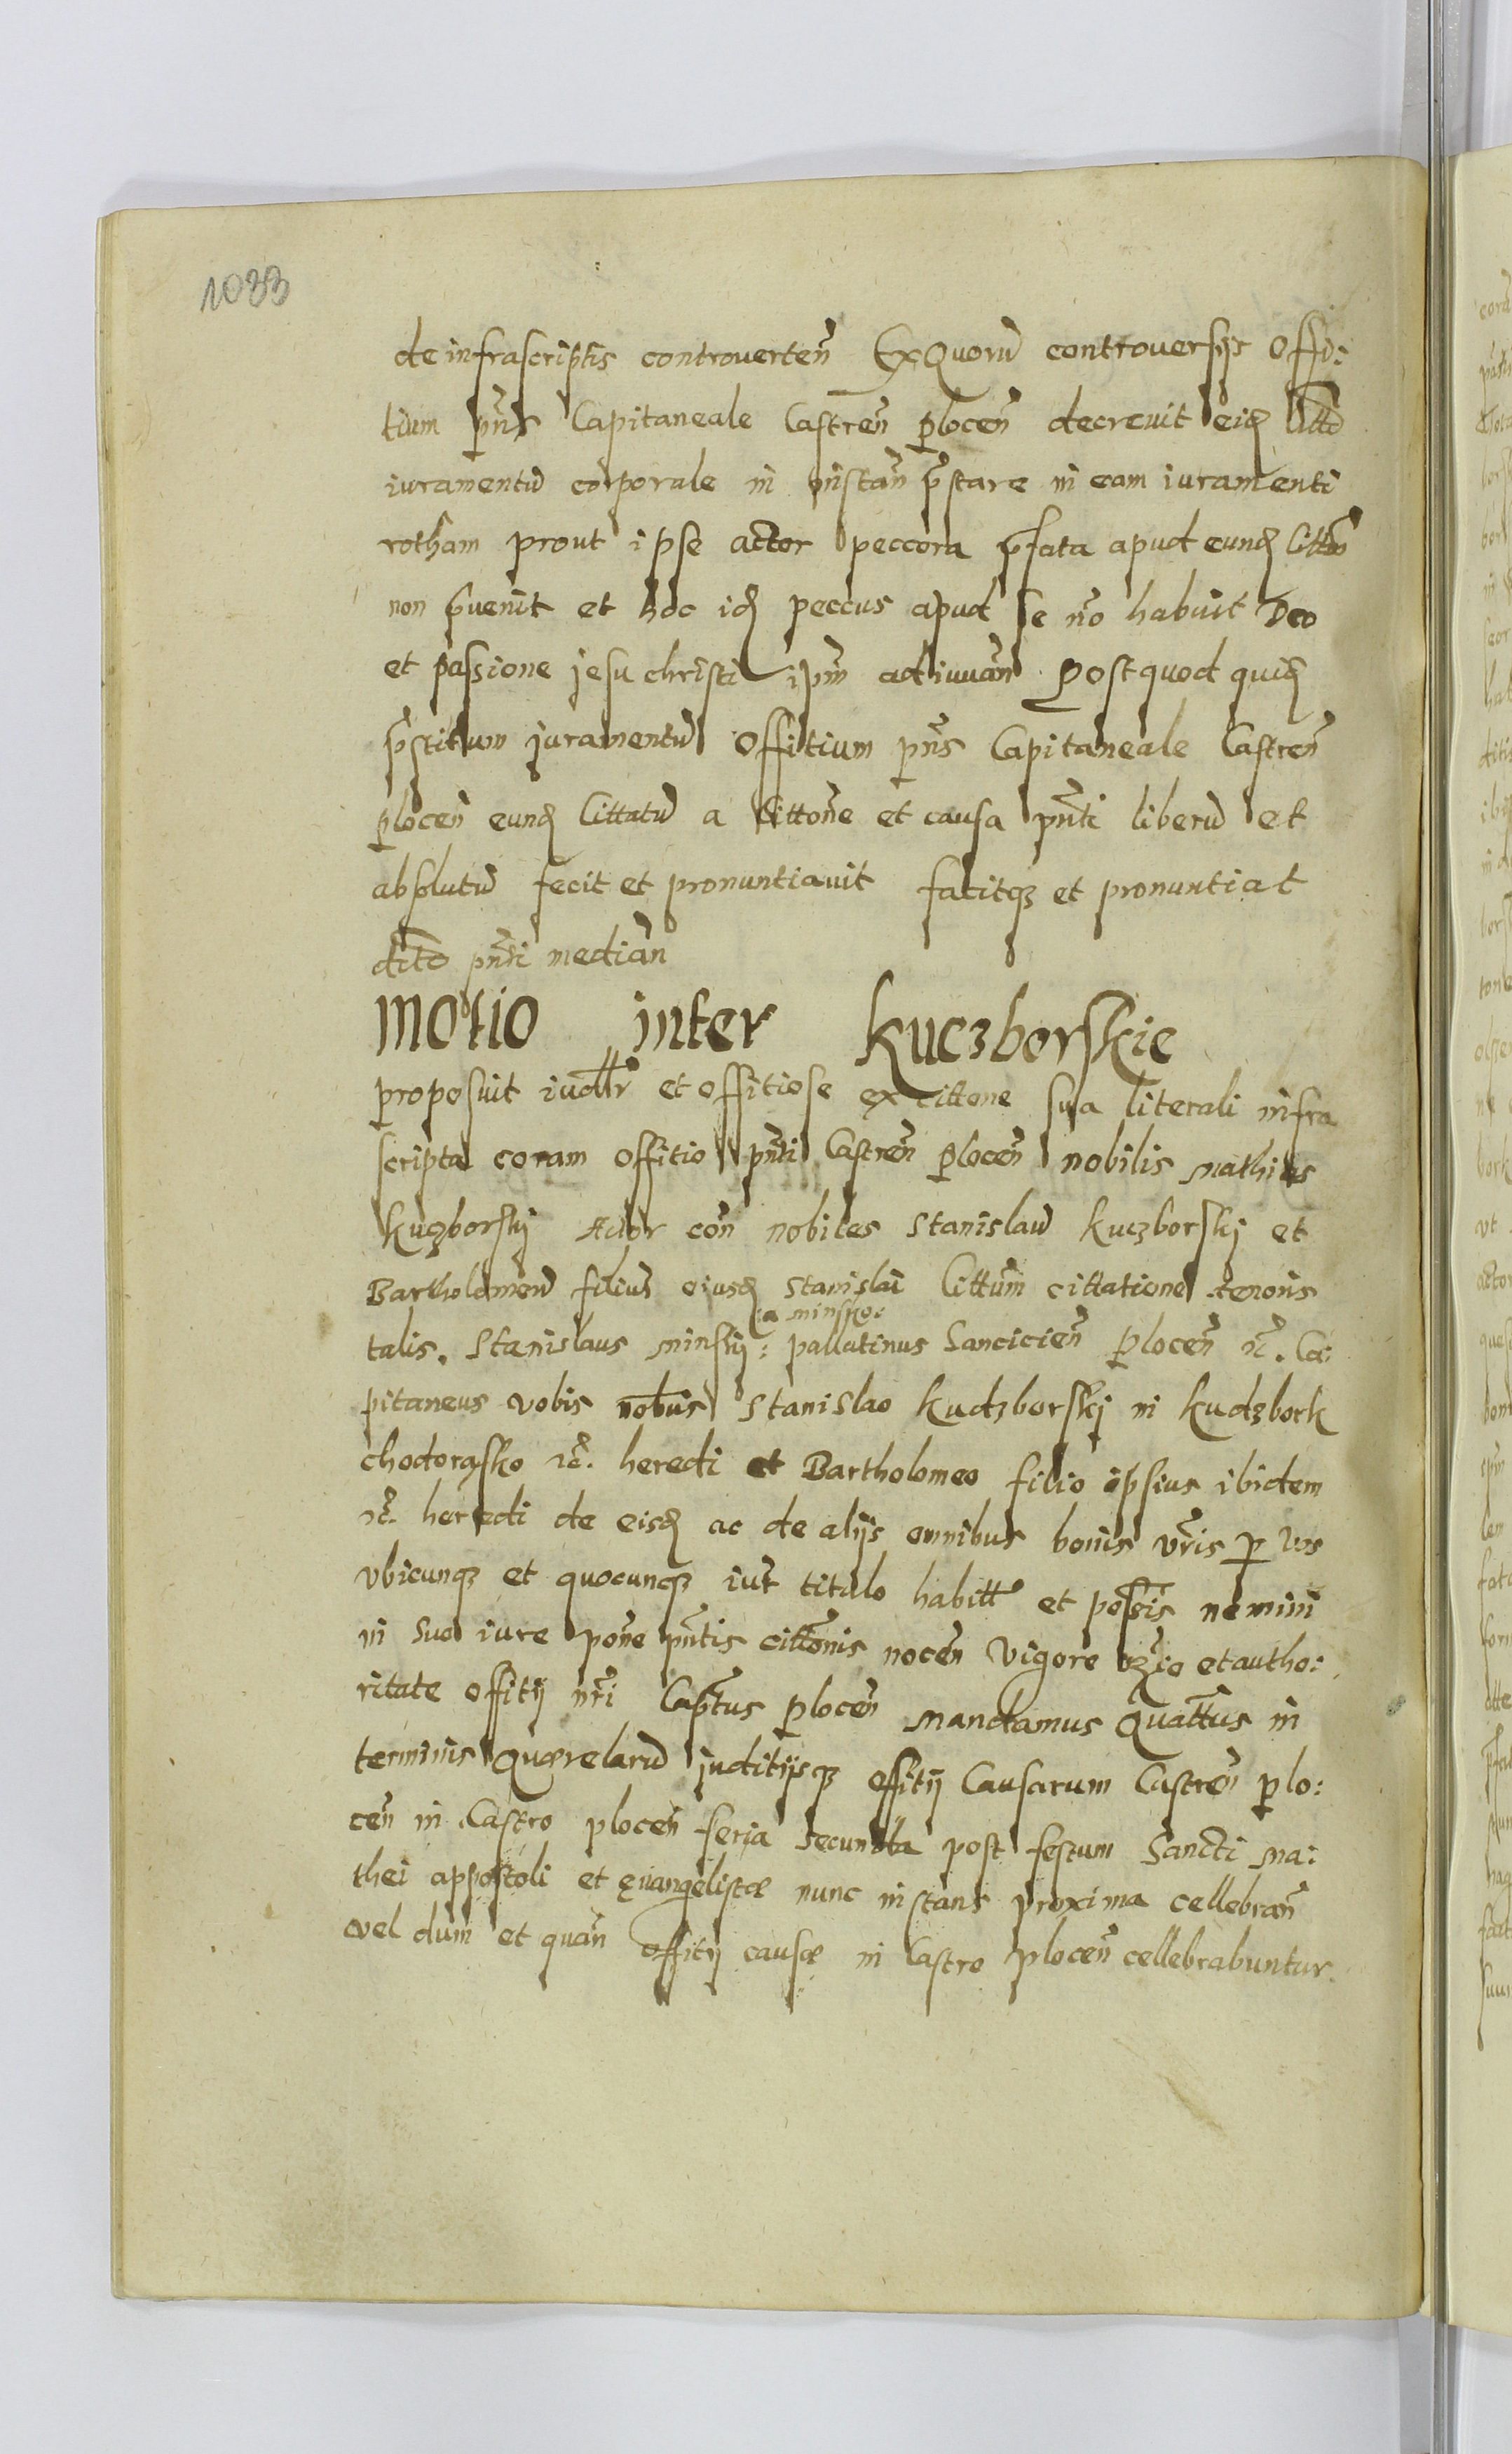 1033
de infrascriptis controverten̄ Ex Quorū controversijs Offi:
tium pn̄s Capitaneale Castren̄ plocen̄ decrevit eid̄ Citto
iuramentū corporale in instan̄ p̄stare in eam iuramenti
rotham prout ipse actor peccora p̄fata apud eund̄ Cittm̄
non p̄venit et hoc id̄ peccus apud se no habuit Deo
et passione Jesu christi ipm̄ adiuvan̄ Postquod quid̄
p̄stitum juramentū Offitium pn̄s Capitaneale Castren̄
plocen̄ eund̄ Cittatū a Cittone et causa pn̄ti liberū et
absolutū fecit et pronuntiavit facitqȝ et pronuntiat
dicto pn̄ti median̄
Motio inter Kuczborskie
proposuit iudllr et offitiose ex cittone sua literali infra
scripta coram Offitio pn̄ti Castren̄ plocen̄ nobilis Mathias
Kuczborskj Actor con̄ nobiles Stanislaū Kuczborskj et
Bartholomeū filiū eiusd̄ Stanislai Cittum̄ cittatione tenoris
a minsko:
talis. Stanislaus minskij: pallatinus Lancicien̄ plocen̄ ꝛc̄. Ca:
pitaneus vobis nobus Stanislao Kudzborskj in Kudzbork
chodorąsko ꝛc̄. heredi et Bartholomeo filio ipsius ibidem
ꝛc̄. heredi de eisd̄ ac de alijs omnibus bonis vr̄is p vos
vbicunqȝ et quocunqȝ iur titulo habitt et possis nemini
in suo iure pone pn̄tis cittonis nocen̄ vigore et autho:
ritate offitij nr̄i Captus plocen̄ mandamus Quattus in
terminis Querelarū juditijsqȝ offitij Causarum Castren̄ plo:
cen̄ in Castro plocen̄ feria secunda post festum Sancti Ma:
thei appostoli et Evangelistæ nunc instans proxima cellebran̄
vel dum et quan̄ offitij causæ in Castro plocen̄ cellebrabuntur.